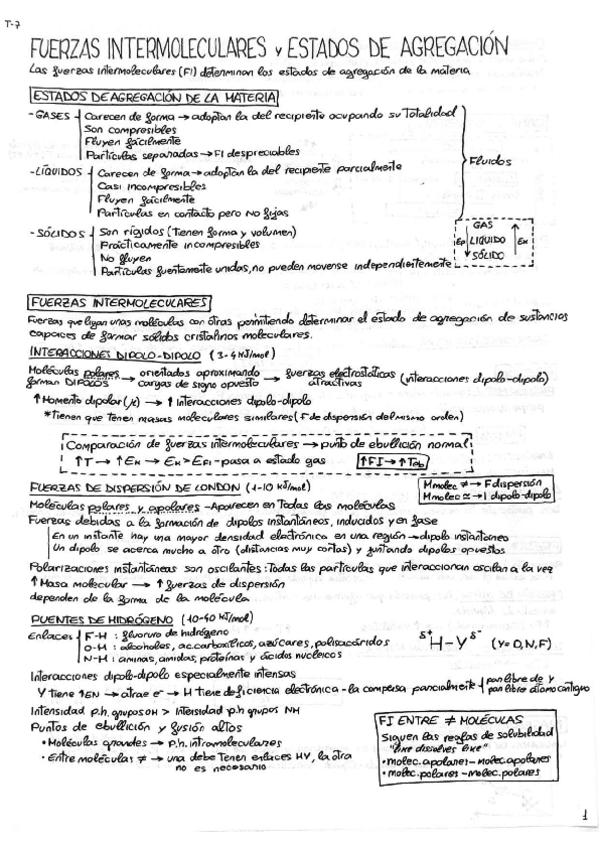 T-7
FUERZAS INTERMOLECULARES y ESTADOS DE AGREGACIÓN
Las fuerzas intermoleculares (FI) determinan los estados de agregación de la materia
ESTADOS DE AGREGACIÓN DE LA MATERIA
- GASES Carecen de forma → adoptan la del recipiente ocupando su totalidad
Son compresibles
Fluyen fácilmente
Partículas separadas → FI despreciables
Fluidos
- LÍQUIDOS Carecen de forma → adoptan la del recipiente parcialmente
Casi incompresibles
Fluyen fácilmente
Partículas en contacto pero NO fijas
- SÓLIDOS Son rígidos (tienen forma y volumen)
Prácticamente incompresibles
No fluyen
Partículas fuertemente unidas, no pueden moverse independientemente
GAS
Ep ↓ LIQUIDO ↑ Ek
SÓLIDO
FUERZAS INTERMOLECULARES
Fuerzas que ligan unas moléculas con otras permitiendo determinar el estado de agregación de sustancias
capaces de formar sólidos cristalinos moleculares.
INTERACCIONES DIPOLO-DIPOLO (3-4 kJ/mol)
Moléculas polares → orientados aproximando → fuerzas electrostáticas (interacciones dipolo-dipolo)
forman DIPOLOS cargas de signo opuesto atractivas
↑ Momento dipolar (μ) → ↑ Interacciones dipolo-dipolo
*Tienen que tener masas moleculares similares (F de dispersión del mismo orden)
Comparación de fuerzas intermoleculares → punto de ebullición normal
↑T → ↑Ek → Ek > EFI - pasa a estado gas ↑FI → ↑Teb
FUERZAS DE DISPERSIÓN DE LONDON (1-10 kJ/mol)
Mmolec ≠ → F dispersión
Mmolec ≃ → I dipolo-dipolo
Moléculas polares y apolares - Aparecen en todas las moléculas
Fuerzas debidas a la formación de dipolos instantáneos, inducidos y en fase
En un instante hay una mayor densidad electrónica en una región → dipolo instantáneo
Un dipolo se acerca mucho a otro (distancias muy cortas) y juntando dipolos opuestos
Polarizaciones instantáneas son oscilantes: todas las partículas que interaccionan oscilan a la vez
↑ Masa molecular → ↑ fuerzas de dispersión
dependen de la forma de la molécula
PUENTES DE HIDRÓGENO (10-40 kJ/mol)
Enlaces F-H : fluoruro de hidrógeno
O-H : alcoholes, ac. carboxílicos, azúcares, polisacáridos
N-H : aminas, amidas, proteínas y ácidos nucleicos
δ+ H-Y δ- (Y=O,N,F)
Interacciones dipolo-dipolo especialmente intensas
Y tiene ↑EN → atrae e- → H tiene deficiencia electrónica - la compensa parcialmente par libre de Y
par libre átomo contiguo
Intensidad p.h. grupos OH > intensidad p.h grupos NH
Puntos de ebullición y fusión altos
• Moléculas grandes → p.h. intramoleculares
• Entre moléculas ≠ → una debe tener enlaces HY, la otra
no es necesario
FI ENTRE ≠ MOLÉCULAS
Siguen las reglas de solubilidad
"like dissolves like"
• molec. apolares - molec. apolares
• molec. polares - molec. polares
1